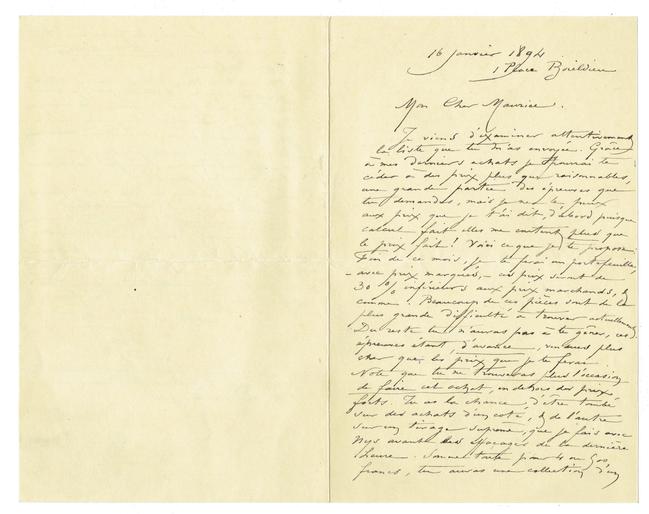 16 janvier 1894
1 Place Boieldieu
Mon Cher Maurice.
Je viens d'examiner attentivement
la liste que tu m'as envoyée. Grâce
à mes derniers achats je pourrai te
céder à des prix plus que raisonnables,
une grande partie des épreuves que
tu demandes, mais je ne le puis
aux prix que je t'ai dit, d'abord puisque
calcul fait elles me coutent plus que
le prix fait! Voici ce que je te propose
Fin de ce mois, je te ferai un portefeuille,
avec prix marqués, ces prix seront de
30 % inférieurs aux prix marchands, &
comme. Beaucoup de ces pièces sont de la
plus grande difficulté à trouver actuellement
Du reste tu n'auras pas à te gêner, ces
épreuves étant d'avance, vendues plus
cher que les prix que je te ferai.
Note que tu ne trouveras plus l'occasion
de faire cet achat, en dehors des prix
forts. Tu as la chance d'être tombé
sur des achats d'un coté, & de l'autre
sur un tirage suprême, que je fais avec
Nys avant les de la dernière
heure. Somme toute pour 4 ou 500
francs, tu auras une collection d'un